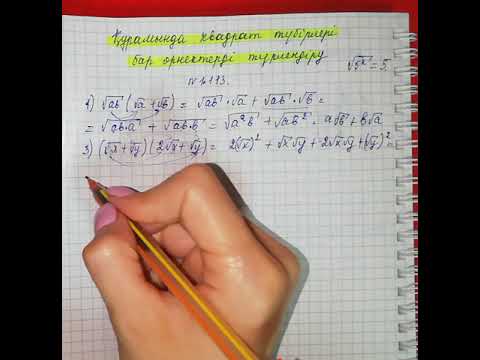 Құрамында квадрат түбірлері
бар өрнектерді түрлендіру
√5² = 5.
№ 1.113.
1) √ab (√a + √b) = √ab · √a + √ab · √b =
= √ab·a + √ab·b = √a²b + √ab² = a√b + b√a
3) (√x + √y)(2√x + √y) = 2(√x)² + √x√y + 2√x√y + (√y)² =